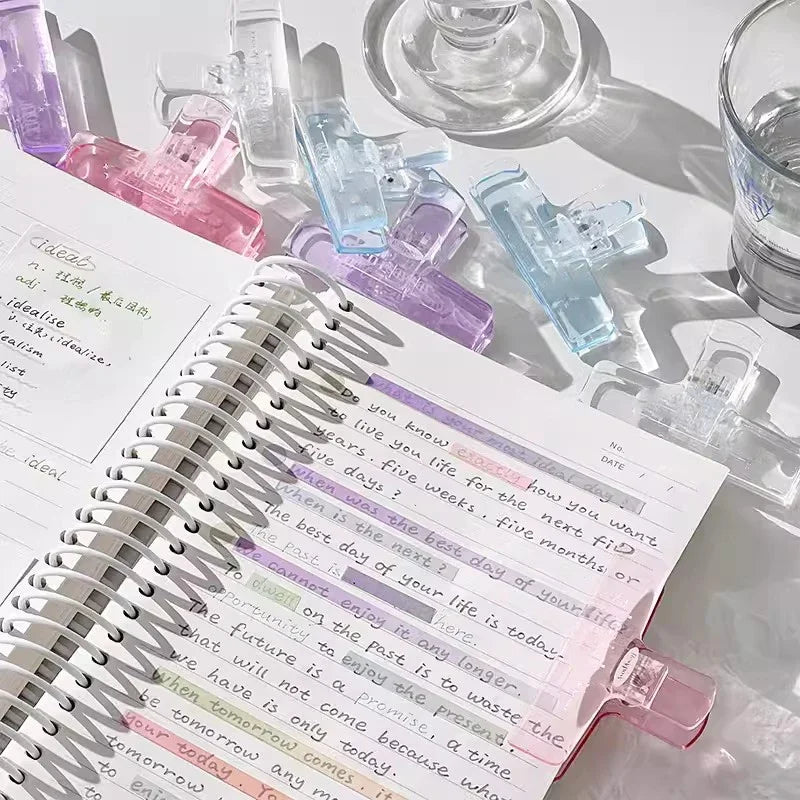 ideal
n. 理想
adj. 理想的
idealise
idealize,
dealism
list
ty
be ideal
No.
DATE / /
What is your most ideal day?
Do you know exactly how you want
to live you life for the next five
years. five weeks. five months or
five days?
When was the best day of your life
When is the next?
The best day of your life is today.
The past is here.
We cannot enjoy it any longer.
To dwell on the past is to waste the
opportunity to enjoy the present.
The future is a promise, a time
that will not come because what
we have is only today.
When tomorrow comes. it
be tomorrow any mo
your today. Yo
tomorrow
to enjo